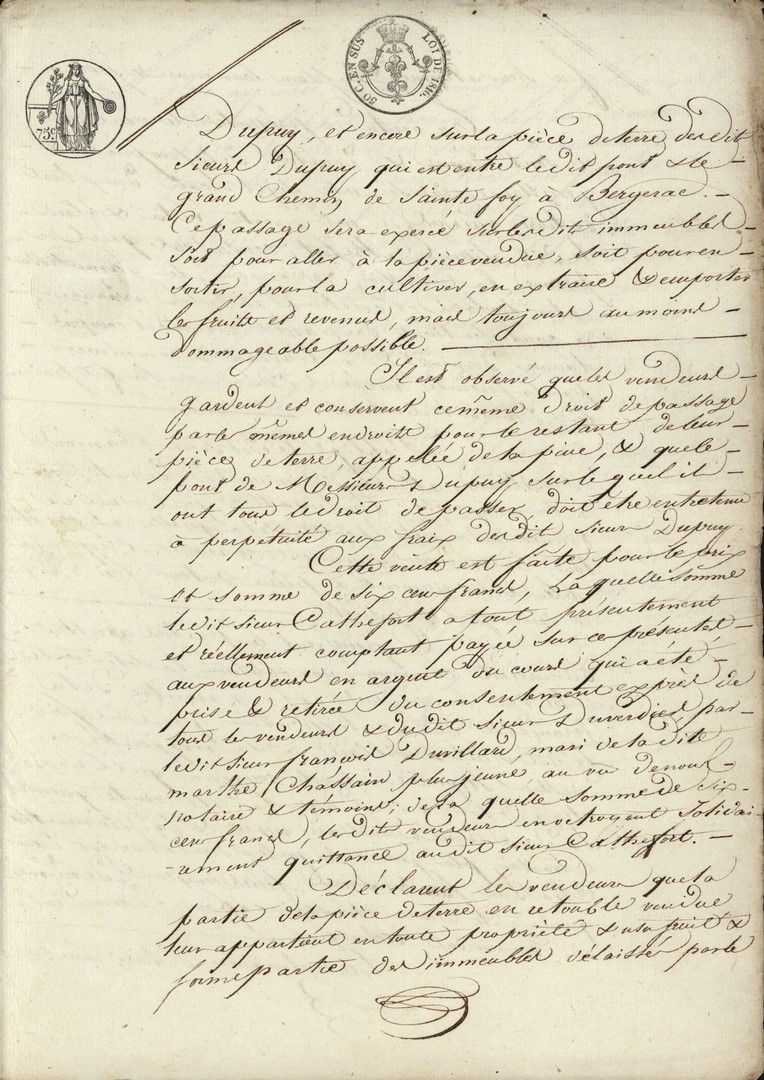 50 C. EN SUS
LOI DE 1816.
75 c
Dupuy, et encore sur la pièce de terre desdit
sieurs Dupuy qui est entre ledit pont & le —
grand Chemin de Sainte foy à Bergerac. —
Ce passage sera exercé sur lesdits immeubles —
soit pour aller à la pièce vendue, soit pour en —
sortir, pour la cultiver, en extraire & emporter
les fruits et revenus, mais toujours au moins —
dommageable possible. —
Il est observé que les vendeurs —
gardent et conservent ce même droit de passage
par les mêmes endroits pour le restant de leur —
pièce de terre, appelée de la pine, & que le —
pont de Messieurs Dupuy sur lequel il —
ont tous le droit de passer, doit être entretenu
à perpétuité aux fraix desdit sieurs Dupuy.
Cette vente est faite pour le prix
et somme de six cens francs, laquelle somme
ledit sieur Cathefort a tout présentement
et réellement comptant payée sur ces présentes —
aux vendeurs en argent du cours qui a été —
prise & retirée du consentement exprès de
tous les vendeurs & dudit sieur Duverdier, par —
ledit sieur françois Duvillard, mari de ladite
marthe Chassain plus jeune, au vu de nous —
notaire & témoins; de la quelle somme de six —
cens francs, lesdits vendeurs en octroyent solidai-
-rement quittance audit sieur Cathefort. —
Déclarent les vendeurs que la
partie de la pièce de terre en retouble vendue
leur appartient en toute propriété & usufruit &
forme partie des immeubles délaissés par le